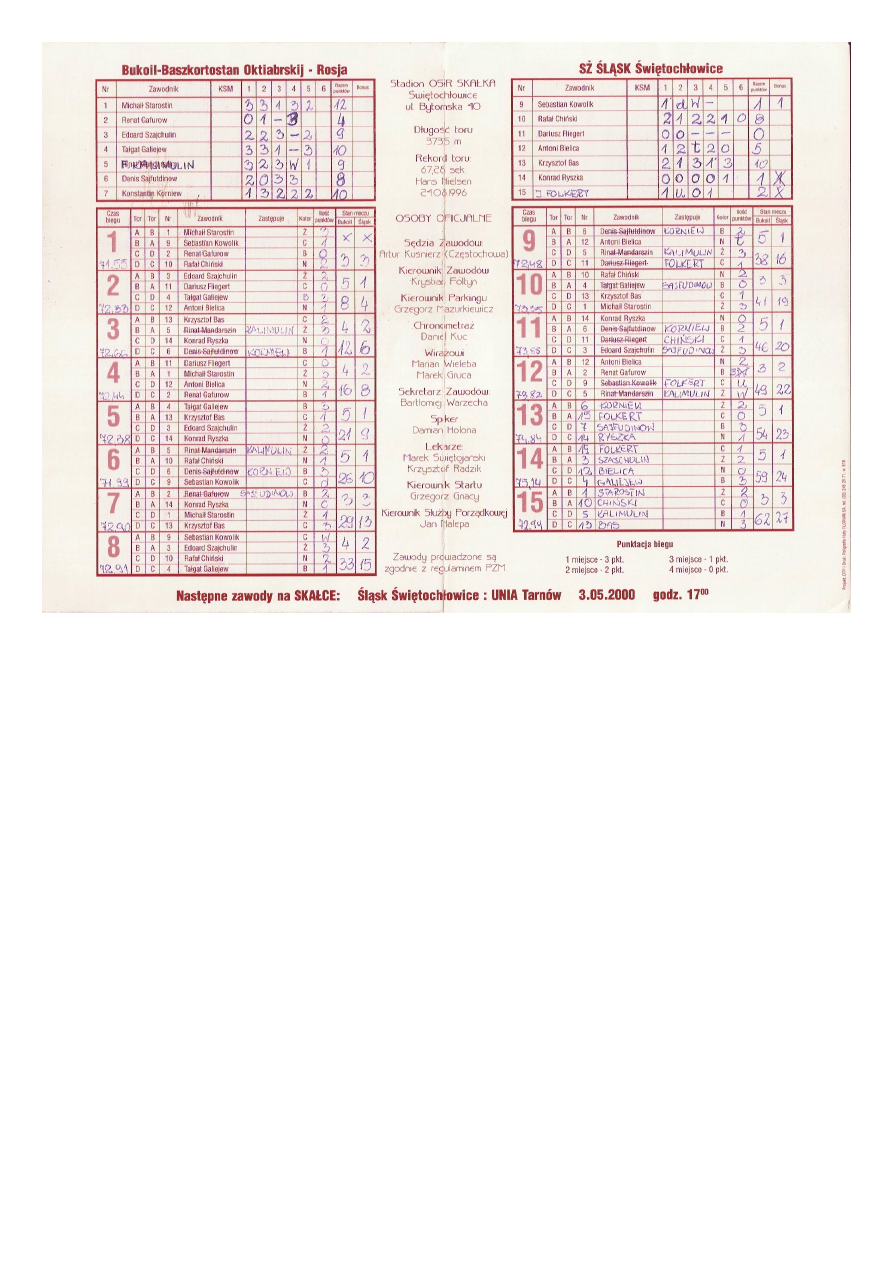 Bukoil-Baszkortostan Oktiabrskij - Rosja
Nr Zawodnik KSM 1 2 3 4 5 6 Razem punktów Bonus
1 Michaił Starostin 3 3 1 3 2 12
2 Renat Gafurow 0 1 - 3 4
3 Edoard Szajchulin 2 2 3 - 2 9
4 Tałgat Galiejew 3 3 1 - 3 10
5 F. KALIMULIN 3 2 3 W 1 9
6 Denis Sajfutdinow 2 0 3 3 8
7 Konstantin Korniew 1 3 2 2 2 10
Stadion OSiR SKAŁKA
Świętochłowice
ul. Bytomska 40
Długość toru
373,5 m
Rekord toru:
67,28 sek
Hans Nielsen
24.08.1996
OSOBY OFICJALNE
Sędzia Zawodów:
Artur Kuśnierz (Częstochowa)
Kierownik Zawodów
Krystian Foltyn
Kierownik Parkingu
Grzegorz Mazurkiewicz
Chronometraż
Daniel Kuc
Wirażowi
Marian Wieleba
Marek Gruca
Sekretarz Zawodów:
Bartłomiej Warzecha
Spiker
Damian Holona
Lekarze:
Marek Świętojański
Krzysztof Radzik
Kierownik Startu
Grzegorz Gnacy
Kierownik Służby Porządkowej
Jan Malepa
Zawody prowadzone są
zgodnie z regulaminem PZM
SŻ ŚLĄSK Świętochłowice
Nr Zawodnik KSM 1 2 3 4 5 6 Razem punktów Bonus
9 Sebastian Kowolik 1 d W - 1 1
10 Rafał Chiński 2 1 2 2 1 0 8
11 Dariusz Fliegert 0 0 - - - 0
12 Antoni Bielica 1 2 t 2 0 5
13 Krzysztof Bas 2 1 3 1 3 10
14 Konrad Ryszka 0 0 0 0 1 1
15 J FOLKERT 1 u 0 1 2
Czas biegu Tor Tor Nr Zawodnik Zastępuje Kolor Ilość punktów Stan meczu Bukoil Śląsk
1 A B 1 Michaił Starostin Ż 3 X X
B A 9 Sebastian Kowolik C 1
C D 2 Renat Gafurow B 0 3 3
71,55 D C 10 Rafał Chiński N 2
2 A B 3 Edoard Szajchulin Ż 2 5 1
B A 11 Dariusz Fliegert C 0
C D 4 Tałgat Galiejew B 3 8 4
72,33 D C 12 Antoni Bielica N 1
3 A B 13 Krzysztof Bas C 2 4 2
B A 5 Rinat Mandarszin KALIMULIN Ż 3
C D 14 Konrad Ryszka N 0 12 6
72,66 D C 6 Denis Sajfutdinow KORNIEW B 1
4 A B 11 Dariusz Fliegert C 0 4 2
B A 1 Michaił Starostin Ż 3
C D 12 Antoni Bielica N 2 16 8
72,44 D C 2 Renat Gafurow B 1
5 A B 4 Tałgat Galiejew B 3 5 1
B A 13 Krzysztof Bas C 1
C D 3 Edoard Szajchulin Ż 2 21 9
72,38 D C 14 Konrad Ryszka N 0
6 A B 5 Rinat Mandarszin KALIMULIN Ż 2 5 1
B A 10 Rafał Chiński N 1
C D 6 Denis Sajfutdinow KORNIEW B 3 26 10
71,99 D C 9 Sebastian Kowolik C d
7 A B 2 Renat Gafurow SAJFUDINOW B 2 3 3
B A 14 Konrad Ryszka N 0
C D 1 Michaił Starostin Ż 1 29 13
72,90 D C 13 Krzysztof Bas C 3
8 A B 9 Sebastian Kowolik C W 4 2
B A 3 Edoard Szajchulin Ż 3
C D 10 Rafał Chiński N 2 33 15
72,91 D C 4 Tałgat Galiejew B 1
Czas biegu Tor Tor Nr Zawodnik Zastępuje Kolor Ilość punktów Stan meczu Bukoil Śląsk
9 A B 6 Denis Sajfutdinow KORNIEW B 2 5 1
B A 12 Antoni Bielica N t
C D 5 Rinat Mandarszin KALIMULIN Ż 3 38 16
72,48 D C 11 Dariusz Fliegert FOLKERT C 1
10 A B 10 Rafał Chiński N 2 3 3
B A 4 Tałgat Galiejew SAJFUDINOW B 0
C D 13 Krzysztof Bas C 1 41 19
73,35 D C 1 Michaił Starostin Ż 3
11 A B 14 Konrad Ryszka N 0 5 1
B A 6 Denis Sajfutdinow KORNIEW B 2
C D 11 Dariusz Fliegert CHIŃSKI C 1 46 20
73,55 D C 3 Edoard Szajchulin SAJFUDINOW Ż 3
12 A B 12 Antoni Bielica N 2 3 2
B A 2 Renat Gafurow B 3
C D 9 Sebastian Kowolik FOLKERT C u 49 22
73,82 D C 5 Rinat Mandarszin KALIMULIN Ż W
13 A B 6 KORNIEW Ż 2 5 1
B A 15 FOLKERT C 0
C D 7 SAJFUDINOW B 3 54 23
74,84 D C 14 RYSZKA N 1
14 A B 15 FOLKERT C 1 5 1
B A 3 SZAJCHULIN Ż 2
C D 12 BIELICA N 0 59 24
75,14 D C 4 GALIEJEW B 3
15 A B 1 STAROSTIN Ż 2 3 3
B A 10 CHIŃSKI C 0
C D 5 KALIMULIN B 1 62 27
72,94 D C 13 BAS N 3
Punktacja biegu
1 miejsce - 3 pkt. 3 miejsce - 1 pkt.
2 miejsce - 2 pkt. 4 miejsce - 0 pkt.
Następne zawody na SKAŁCE: Śląsk Świętochłowice : UNIA Tarnów 3.05.2000 godz. 17⁰⁰